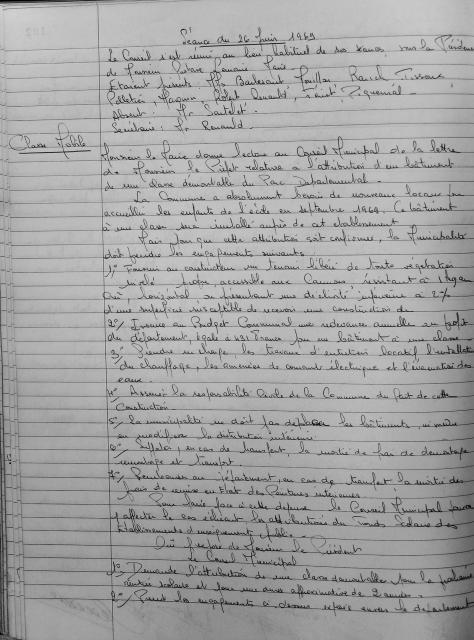 Séance du 26 Juin 1969
Le Conseil s'est réuni au lieu habituel de ses séances sous la Présidence
de Monsieur Maire
Etaient présents : Mrs Barberant
Pelletier
Absent : Mr
Secrétaire : Mr Renauld.
Classe Mobile
Monsieur le Maire donne lecture au Conseil Municipal de la lettre
de Monsieur le Préfet relative à l'attribution d'un bâtiment
de une classe démontable du Parc Départemental.
La Commune a absolument besoin de nouveaux locaux pour
accueillir les enfants de l'école en septembre 1969. Ce bâtiment
à une classe sera installé auprès de cet établissement
Mais pour que cette attribution soit confirmée, la Municipalité
doit prendre les engagements suivants :
1°/ Fournir au constructeur un terrain libéré de toute végétation
nivelé, propre, accessible aux Camions, résistant à 1 kg au
Cm², horizontal, ou présentant une déclivité inférieure à 2%
d'une superficie susceptible de recevoir une construction de
2°/ Inscrire au Budget Communal une redevance annuelle au profit
du département, égale à 431 Francs par un bâtiment à une classe
3°/ Prendre en charge, les travaux d'entretien locatif l'installation
du chauffage, les amenées de courant électrique et l'évacuation des
eaux.
4°/ Assurer la responsabilité Civile de la Commune du fait de cette
Construction
5°/ La municipalité ne doit pas déplacer les bâtiments, ni même
en modifier la distribution intérieure
6°/ en cas de transfert, la moitié de frais de démontage
remontage et transport.
7°/ Rembourser au département, en cas de transfert la moitié des
frais de remise en Etat des Peintures intérieures
Pour faire face à cette dépense le Conseil Municipal pourra
y affecter le cas échéant les attributions du Fonds Scolaire des
Etablissements d'enseignements public
Ouï l'exposé de Monsieur le Président
Le Conseil Municipal
1°/ Demande l'attribution de une classe démontable pour la prochaine
rentrée scolaire et pour une durée approximative de 2 années.
2°/ Prend les engagements ci-dessus envers le département